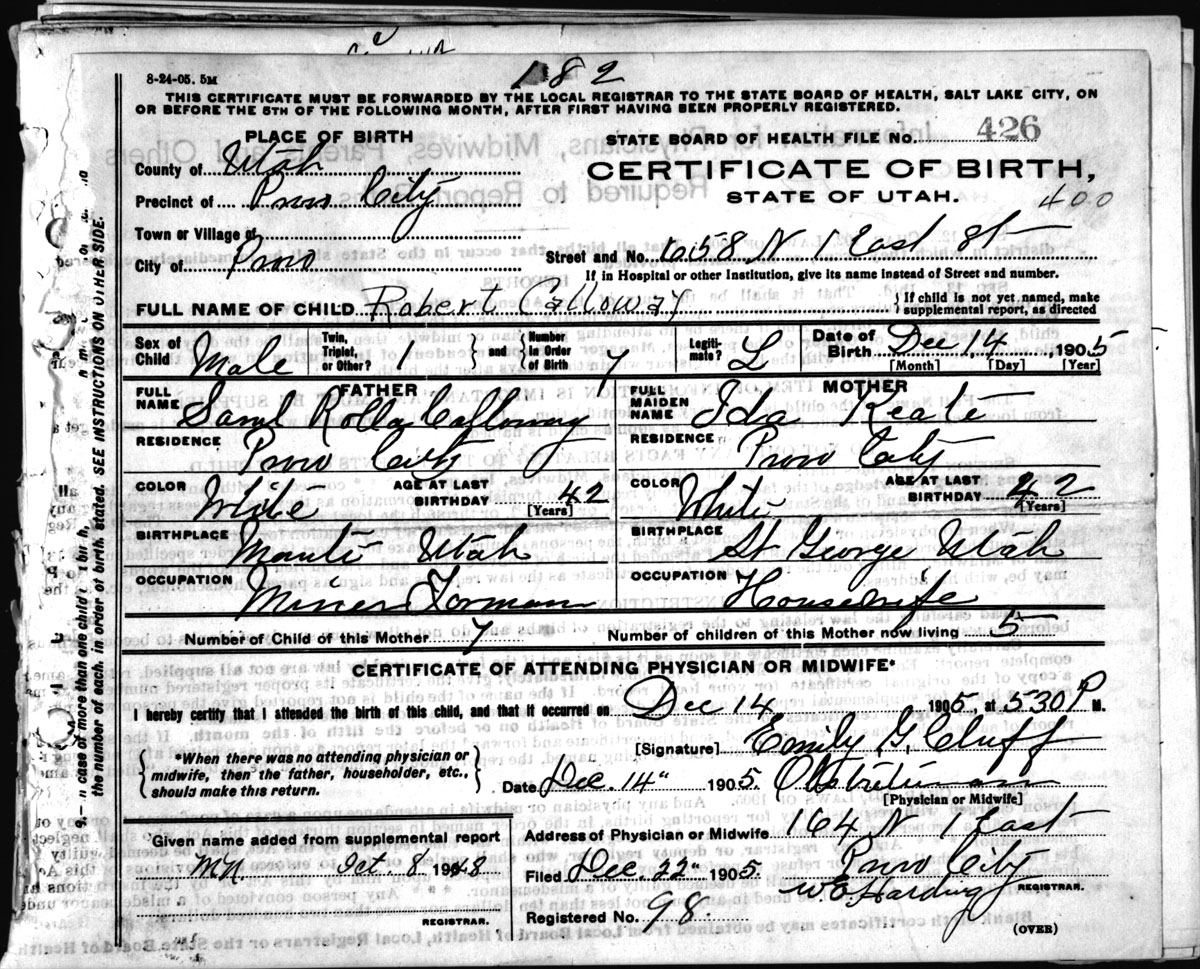 182
8-24-05. 5M
THIS CERTIFICATE MUST BE FORWARDED BY THE LOCAL REGISTRAR TO THE STATE BOARD OF HEALTH, SALT LAKE CITY, ON
OR BEFORE THE 5TH OF THE FOLLOWING MONTH, AFTER FIRST HAVING BEEN PROPERLY REGISTERED.
PLACE OF BIRTH
STATE BOARD OF HEALTH FILE NO. 426
County of Utah
CERTIFICATE OF BIRTH,
Precinct of Provo City
STATE OF UTAH.
400
Town or Village of
City of Provo
Street and No. 658 N 1 East St
If in Hospital or other Institution, give its name instead of Street and number.
FULL NAME OF CHILD Robert Calloway
{If child is not yet named, make
supplemental report, as directed
Sex of Child Male
Twin, Triplet, or Other? 1 } and { Number in Order of Birth 7
Legitimate? L
Date of Birth Dec 14, 1905
[Month] [Day] [Year]
FATHER
FULL NAME Saml Rolla Calloway
MOTHER
FULL MAIDEN NAME Ida Keate
RESIDENCE Provo City
RESIDENCE Provo City
COLOR White AGE AT LAST BIRTHDAY 42 [Years]
COLOR White AGE AT LAST BIRTHDAY 42 [Years]
BIRTHPLACE Manti Utah
BIRTHPLACE St George Utah
OCCUPATION Miner Forman
OCCUPATION Housewife
Number of Child of this Mother 7
Number of children of this Mother now living 5
CERTIFICATE OF ATTENDING PHYSICIAN OR MIDWIFE*
I hereby certify that I attended the birth of this child, and that it occurred on Dec 14 1905, at 530 P M.
{*When there was no attending physician or
midwife, then the father, householder, etc.,
should make this return.}
[Signature] Emily G. Cluff
Date Dec. 14" 1905. Obstetrician
[Physician or Midwife]
Given name added from supplemental report
MN. Oct. 8 1948
REGISTRAR.
Address of Physician or Midwife 164 N 1 East
Provo City
Filed Dec. 22" 1905.
W. O. Harding REGISTRAR.
Registered No. 98.
(OVER)
case of more than one child
the number of each, in order of birth, stated. SEE INSTRUCTIONS ON OTHER SIDE.